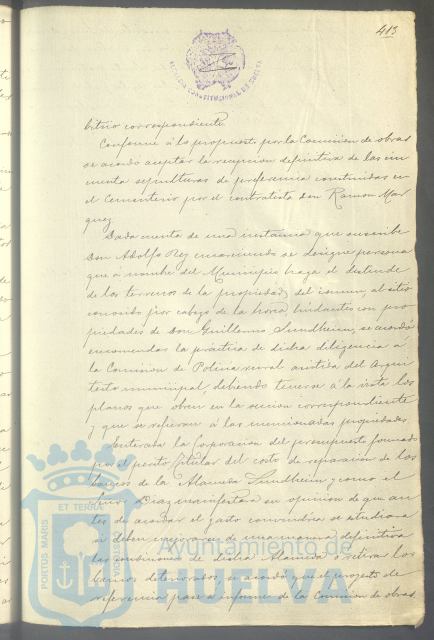 413
ALCALDIA CONSTITUCIONAL DE HUELVA
bitrio correspondiente.
Conforme á lo propuesto por la Comision de obras
se acordó aceptar la recepcion definitiva de las cin
cuenta sepulturas de preferencia construidas en
el Cementerio por el contratista Don Ramon Mar
quez
Dada cuenta de una instancia que suscribe
Don Adolfo Rey interesando se designe persona
que á nombre del Municipio haga el deslinde
de los terrenos de la propiedad del comun, al sitio
conocido por cabezo de la horca lindantes con pro
piedades de Don Guillermo Sundheim, se acordó
encomendar la práctica de dicha diligencia á
la Comision de Policia rural asistida del Arqui
tecto municipal, debiendo tenerse á la vista los
planos que obren en la seccion correspondiente
y que se refieran á las mencionadas propiedades
Enterada la Corporacion del presupuesto formado
por el perito titular del costo de reparacion de los
bancos de la Alameda Sundheim y como el
Señor Diaz manifestara su opinion de que an
tes de acordar el gasto convendria se estudiara
si deben mejorarse de una manera definitiva
las condiciones de dicha Alameda y retirar los
bancos deteriorados, se acordó que el proyecto de
referencia pase á informe de la Comision de obras.
PORTUS MARIS ET TERRAE CUSTODIA
Ayuntamiento de
HUELVA